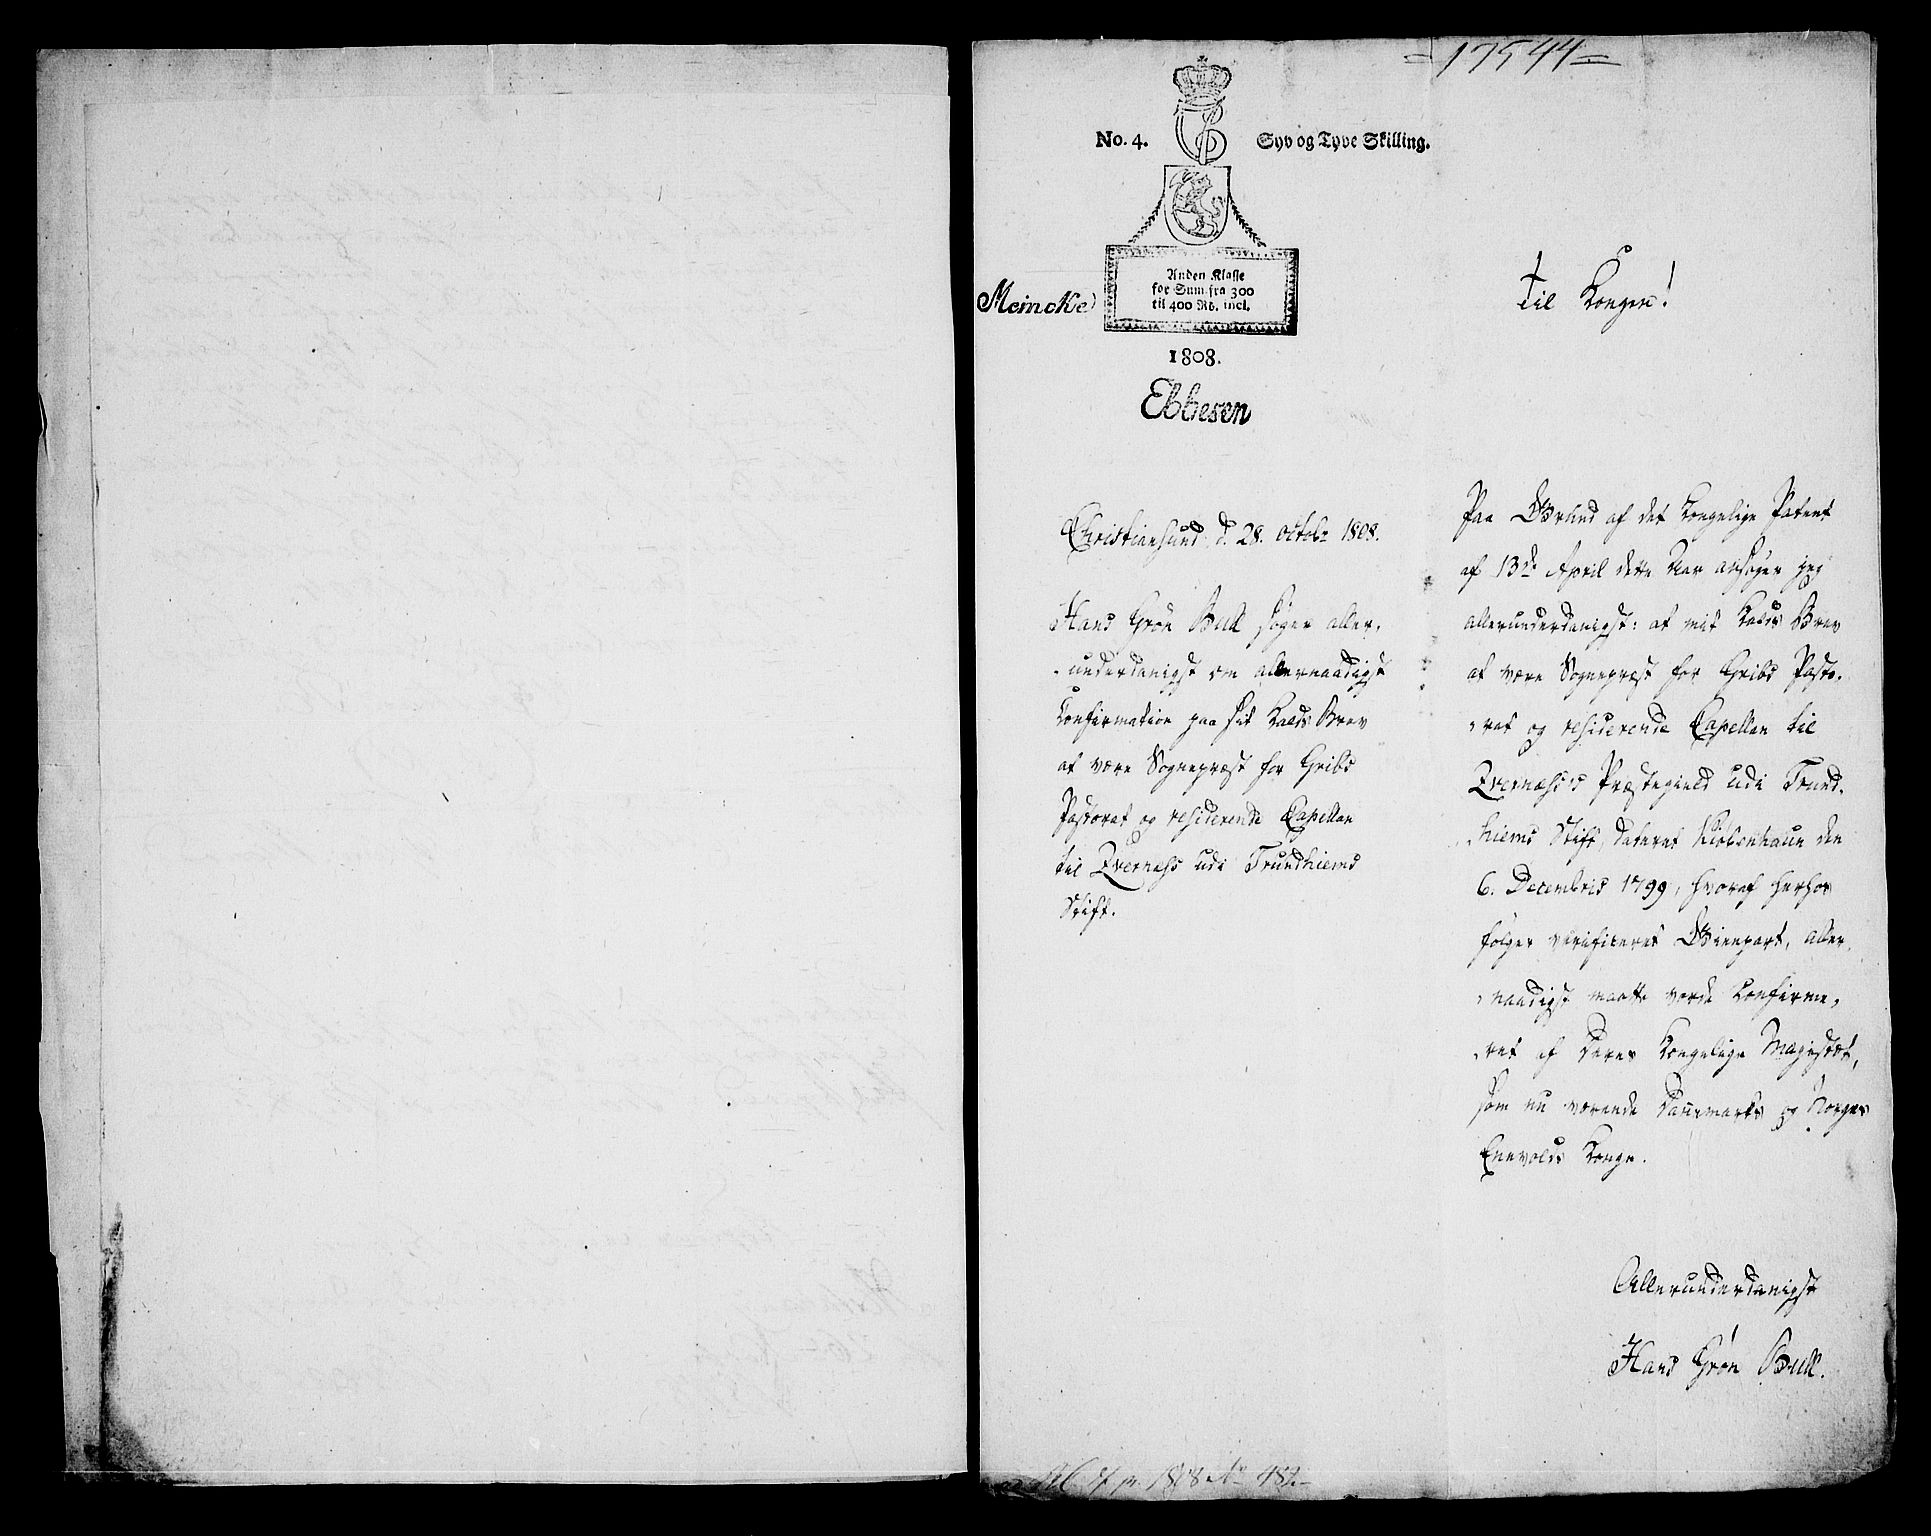 =17544=
No. 4. Syv og Tyve Skilling.
Anden Klasse
for Sum fra 300
til 400 Rd. incl.
Meincke
1808.
Ebbesen
Christiansund, d. 28. octobr 1808.
Hans Grøn Bull søger aller,
underdanigst om allernaadigst
Confirmation paa sit Kalds Brev
at være Sognepræst for Gribs
Pastorat og residerende Capellan
til Qvernæss udi Trundhiems
Stift.
Til Kongen!
Paa Grund af det Kongelige Patent
af 13de April dette Aar ansøger jeg
allerunderdanigst: at mit Kalds Brev
at være Sognepræst for Gribs Pasto,
rat og residerende Capellan til
Qvernæss's Præstegield udi Trund,
hiems Stift, dateret Kiøbenhavn den
6. Decembris 1799, hvoraf herhos
følger verificeret Gienpart, aller,
naadigst maatte vorde Confirme,
ret af Deres Kongelige Majestæt,
som nu værende Dannemarks og Norges
Enevolds Konge.
Allerunderdanigst
Hans Grøn Bull.
1808 No 482